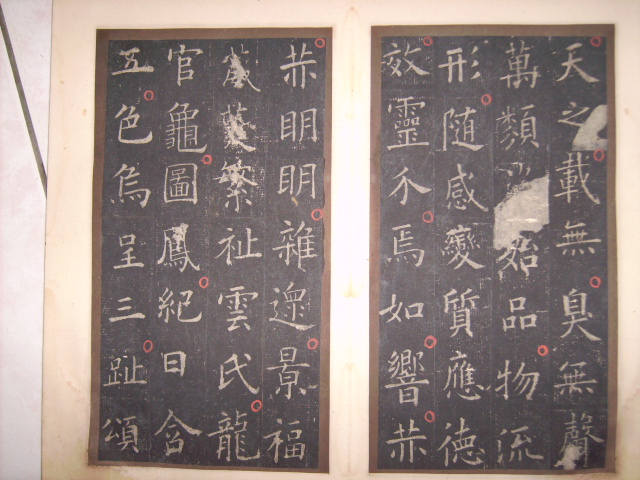 天之載無臭無聲
萬類始品物流
形隨感變質應德
效靈介焉如響赫
赫明明雜遝景福
葳蕤繁祉雲氏龍
官龜圖鳳紀日含
五色烏呈三趾頌